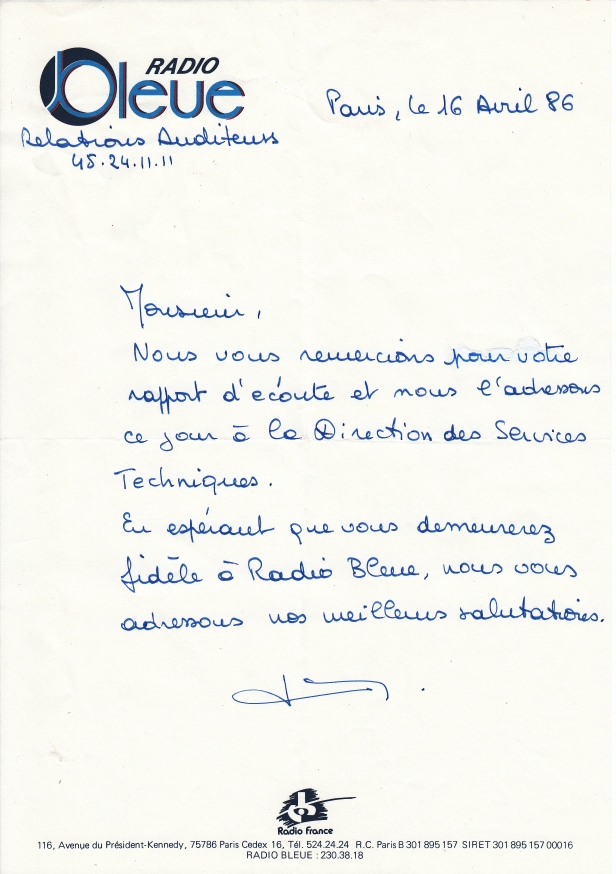 RADIO
bleue
Relations Auditeurs
45.24.11.11
Paris, le 16 Avril 86
Monsieur,
Nous vous remercions pour votre
rapport d'écoute et nous l'adressons
ce jour à la Direction des Services
Techniques.
En espérant que vous demeurerez
fidèle à Radio Bleue, nous vous
adressons nos meilleures salutations.
Radio France
116, Avenue du Président-Kennedy, 75786 Paris Cedex 16, Tél. 524.24.24 R.C. Paris B 301 895 157 SIRET 301 895 157 00016
RADIO BLEUE : 230.38.18